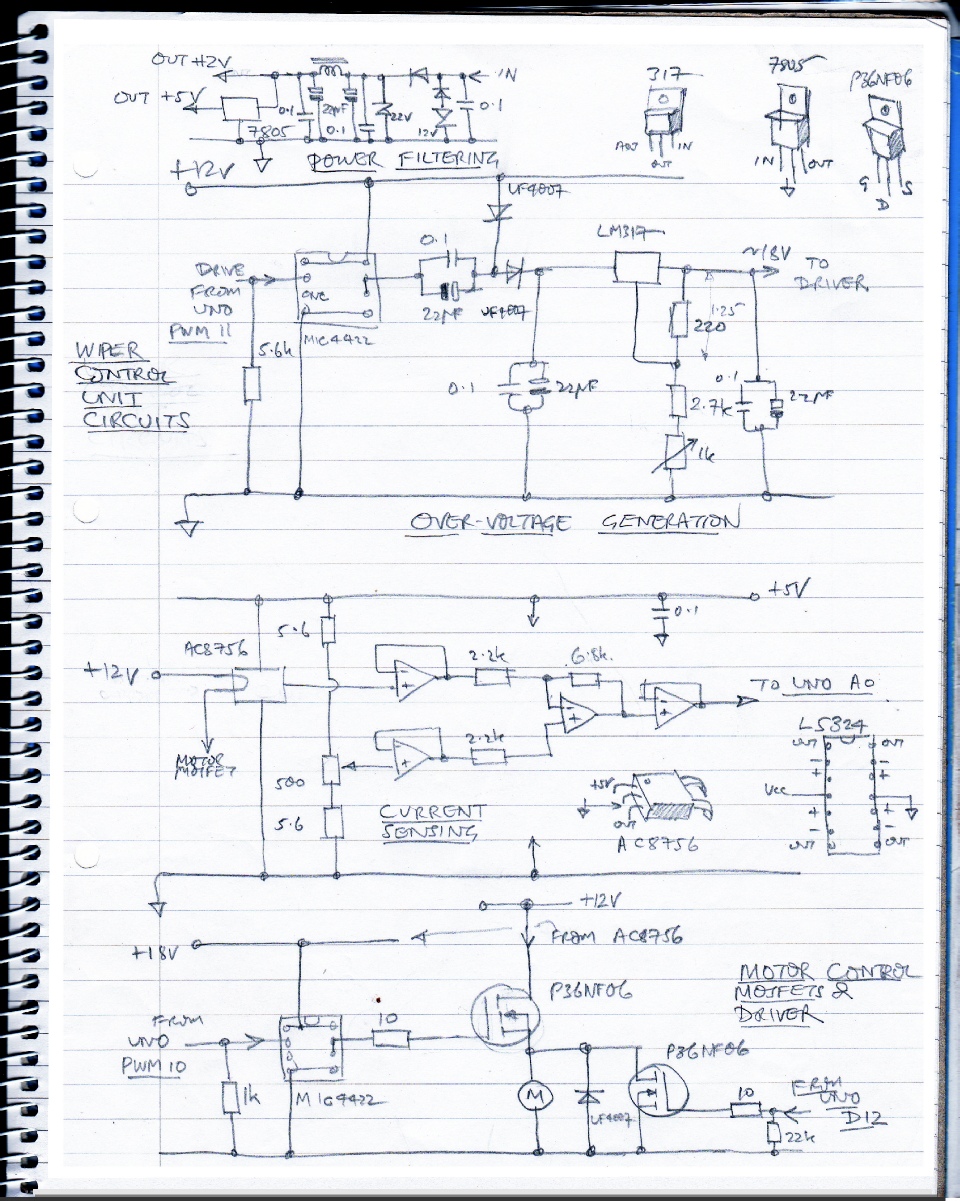 OUT +12V
IN
OUT +5V
0.1
22µF
0.1
22V
12V
0.1
7805
POWER FILTERING
317
ADJ
OUT
IN
7805
IN
OUT
P36NF06
G
D
S
+12V
UF4007
LM317
~18V
TO
DRIVER
DRIVE
FROM
UNO
PWM 11
0.1
22µF
UF4007
MIC4422
5.6k
1.25
220
0.1
22µF
2.7k
0.1
22µF
1k
WIPER
CONTROL
UNIT
CIRCUITS
OVER-VOLTAGE GENERATION
+5V
5.6
0.1
AC8756
+12V
2.2k
6.8k
TO UNO A0
MOTOR
MOSFET
2.2k
500
5.6
CURRENT
SENSING
+5V
OUT
AC8756
LS324
OUT
OUT
-
-
+
+
Vcc
+
+
-
-
OUT
OUT
+12V
+18V
FROM AC8756
MOTOR CONTROL
MOSFETS &
DRIVER
P36NF06
FROM
UNO
PWM 10
10
1k
MIC4422
M
UF4007
P36NF06
10
FROM
UNO
D12
22k